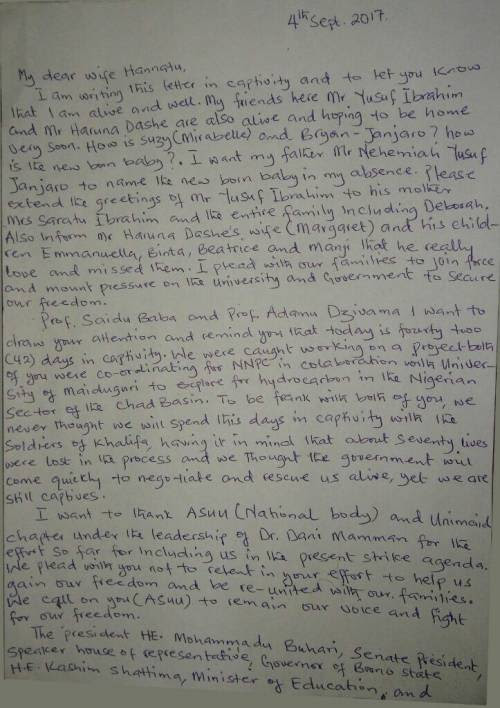 4th Sept. 2017.
My dear wife Hannatu,
I am writing this letter in captivity and to let you know
that I am alive and well. My friends here Mr Yusuf Ibrahim
and Mr Haruna Dashe are also alive and hoping to be home
very soon. How is suzy (Mirabelle) and Bryan-Janjaro? how
is the new born baby?. I want my father Mr Nehemiah Yusuf
Janjaro to name the new born baby in my absence. Please
extend the greetings of Mr Yusuf Ibrahim to his mother
Mrs Saratu Ibrahim and the entire family including Deborah.
Also Inform Mr Haruna Dashe's wife (Margaret) and his child-
ren Emmanuella, Binta, Beatrice and Manji that he really
love and missed them. I plead with our families to join force
and mount pressure on the University and Government to secure
our freedom.
Prof. Saidu Baba and Prof. Adamu Dzivama I want to
draw your attention and remind you that today is fourty two
(42) days in captivity. We were caught working on a project both
of you were co-ordinating for NNPC in colaboration with Univer-
sity of Maiduguri to explore for hydrocarbon in the Nigerian
Sector of the Chad Basin. To be frank with both of you, we
never thought we will spend this days in captivity with the
Soldiers of Khalifa, having it in mind that about seventy lives
were lost in the process and we thought the government will
come quickly to negotiate and rescue us alive, yet we are
still captives.
I want to thank ASUU (National body) and Unimaid
chapter under the leadership of Dr. Dani Mamman for the
effort so far for including us in the present strike agenda.
We plead with you not to relent in your effort to help us
gain our freedom and be re-united with our families.
We call on you (ASUU) to remain our voice and fight
for our freedom.
The president HE. Mohammadu Buhari, Senate President,
Speaker house of representative, Governor of Borno State
H.E. Kashim Shattima, Minister of Education, and